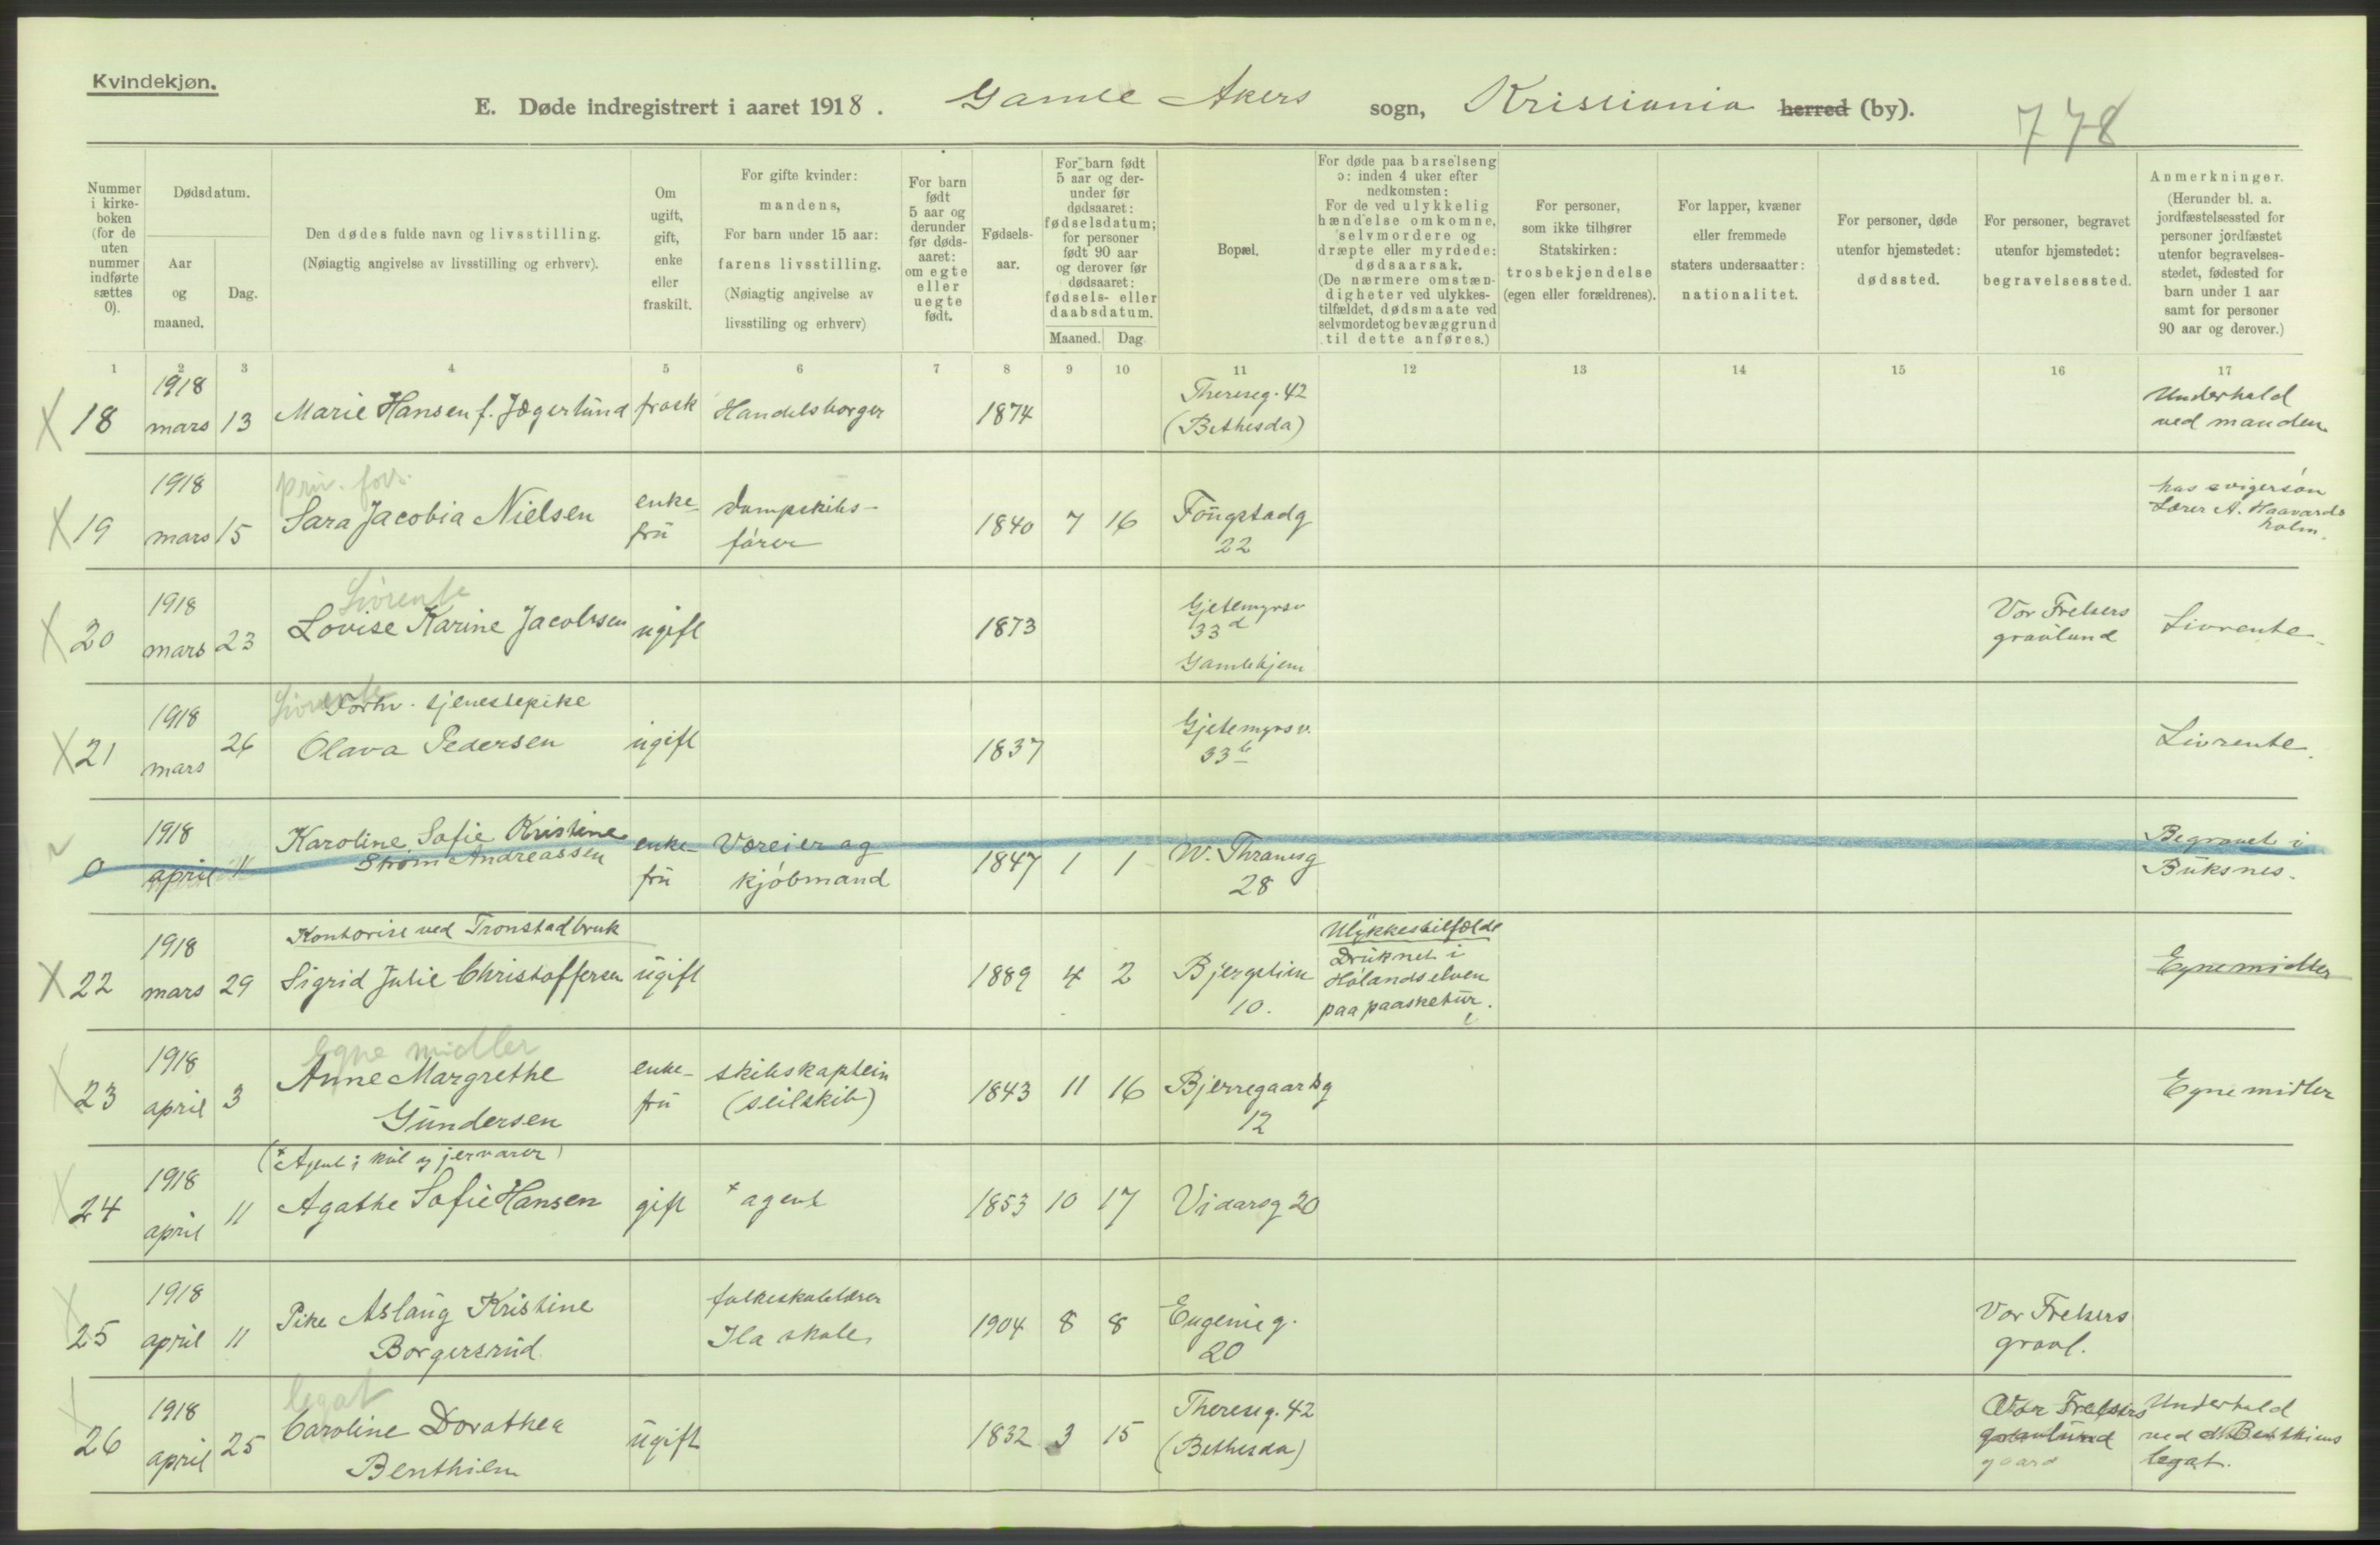 Kvindekjøn.
E. Døde indregistrert i aaret 1918. Gamle Akers sogn, Kristiania herred (by).
778
Nummer i kirkeboken (for de uten nummer indførte sættes 0).
Dødsdatum.
Aar og maaned.
Dag.
Den dødes fulde navn og livsstilling.
(Nøiagtig angivelse av livsstilling og erhverv).
Om ugift, gift, enke eller fraskilt.
For gifte kvinder: mandens,
For barn under 15 aar: farens livsstilling.
(Nøiagtig angivelse av livsstiling og erhverv)
For barn født 5 aar og derunder før dødsaaret: om egte eller uegte født.
Fødselsaar.
For barn født 5 aar og derunder før dødsaaret: fødselsdatum; for personer født 90 aar og derover før dødsaaret: fødsels- eller daabsdatum.
Maaned. Dag.
Bopæl.
For døde paa barselseng ɔ: inden 4 uker efter nedkomsten:
For de ved ulykkelig hændelse omkomne, selvmordere og dræpte eller myrdede: dødsaarsak.
(De nærmere omstændigheter ved ulykkestilfældet, dødsmaate ved selvmordet og bevæggrund til dette anføres.)
For personer, som ikke tilhører Statskirken: trosbekjendelse (egen eller forældrenes).
For lapper, kvæner eller fremmede staters undersaatter: nationalitet.
For personer, døde utenfor hjemstedet: dødssted.
For personer, begravet utenfor hjemstedet: begravelsessted.
Anmerkninger.
(Herunder bl. a. jordfæstelsessted for personer jordfæstet utenfor begravelsesstedet, fødested for barn under 1 aar samt for personer 90 aar og derover.)
1 2 3 4 5 6 7 8 9 10 11 12 13 14 15 16 17
X 18 1918 mars 13 Marie Hansen f. Jægerlund frask Handelsborger 1874 Thereseg. 42 (Bethesda) Underhold ved manden
priv. fors.
X 19 1918 mars 15 Sara Jacobia Nielsen enkefru dampskibsfører 1840 7 16 Fougstadg 22 hos svigersøn Lærer A. Haavardsholm.
Livrente
X 20 1918 mars 23 Lovise Karine Jacobsen ugift 1873 Gjetemyrsv 33 d Gamlehjem Vor Frelsers gravlund Livrente
Livrente
Forhv. tjenestepike
X 21 1918 mars 26 Olava Pedersen ugift 1837 Gjetemyrsv. 33 b Livrente.
0 1918 april 11 Karoline Sofie Kristine Strøm Andreassen enkefru Væreier og kjøbmand 1847 1 1 W. Thranesg 28 Begravet i Buksnes.
Kontorist ved Tronstad bruk
X 22 1918 mars 29 Sigrid Julie Christoffersen ugift 1889 4 2 Bjergstien 10. Ulykkestilfælde Druknet i Hølandselven paa paasketur. Egne midler
Egne midler
X 23 1918 april 3 Anne Margrethe Gundersen enkefru skibskaptein (seilskib) 1843 11 16 Bjerregaardsg 12 Egne midler
(x Agent i kul og jernvarer)
X 24 1918 april 11 Agathe Sofie Hansen gift x agent 1853 10 17 Vidarsg 20
X 25 1918 april 11 Pike Aslaug Kristine Borgersrud folkeskolelærer Ila skole 1904 8 8 Eugenieg. 20 Vor Frelsers gravl.
legat
X 26 1918 april 25 Caroline Dorathea Benthien ugift 1832 3 15 Thereseg. 42 (Bethesda) Vor Frelsers gravlund Underhold ved legat.